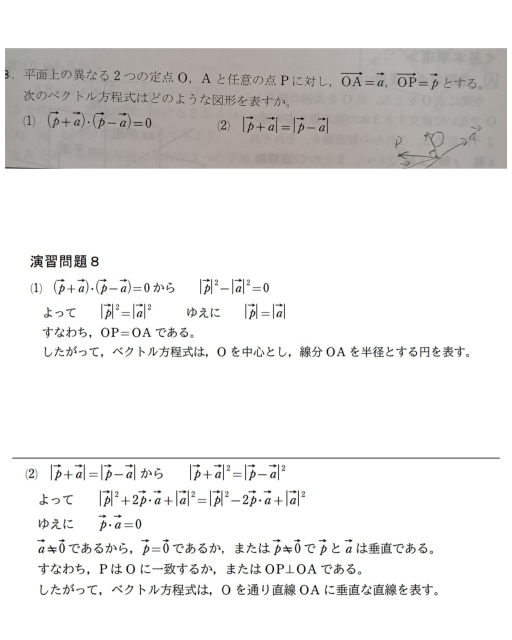 3. 平面上の異なる2つの定点 O, A と任意の点 P に対し, $\overrightarrow{OA}=\vec{a}$, $\overrightarrow{OP}=\vec{p}$ とする。
次のベクトル方程式はどのような図形を表すか。
(1) $(\vec{p}+\vec{a})\cdot(\vec{p}-\vec{a})=0$ (2) $|\vec{p}+\vec{a}|=|\vec{p}-\vec{a}|$
P O $\vec{a}$
演習問題 8
(1) $(\vec{p}+\vec{a})\cdot(\vec{p}-\vec{a})=0$ から $|\vec{p}|^2-|\vec{a}|^2=0$
よって $|\vec{p}|^2=|\vec{a}|^2$ ゆえに $|\vec{p}|=|\vec{a}|$
すなわち, OP=OA である。
したがって, ベクトル方程式は, O を中心とし, 線分 OA を半径とする円を表す。
(2) $|\vec{p}+\vec{a}|=|\vec{p}-\vec{a}|$ から $|\vec{p}+\vec{a}|^2=|\vec{p}-\vec{a}|^2$
よって $|\vec{p}|^2+2\vec{p}\cdot\vec{a}+|\vec{a}|^2=|\vec{p}|^2-2\vec{p}\cdot\vec{a}+|\vec{a}|^2$
ゆえに $\vec{p}\cdot\vec{a}=0$
$\vec{a}\neq\vec{0}$ であるから, $\vec{p}=\vec{0}$ であるか, または $\vec{p}\neq\vec{0}$ で $\vec{p}$ と $\vec{a}$ は垂直である。
すなわち, P は O に一致するか, または OP⊥OA である。
したがって, ベクトル方程式は, O を通り直線 OA に垂直な直線を表す。